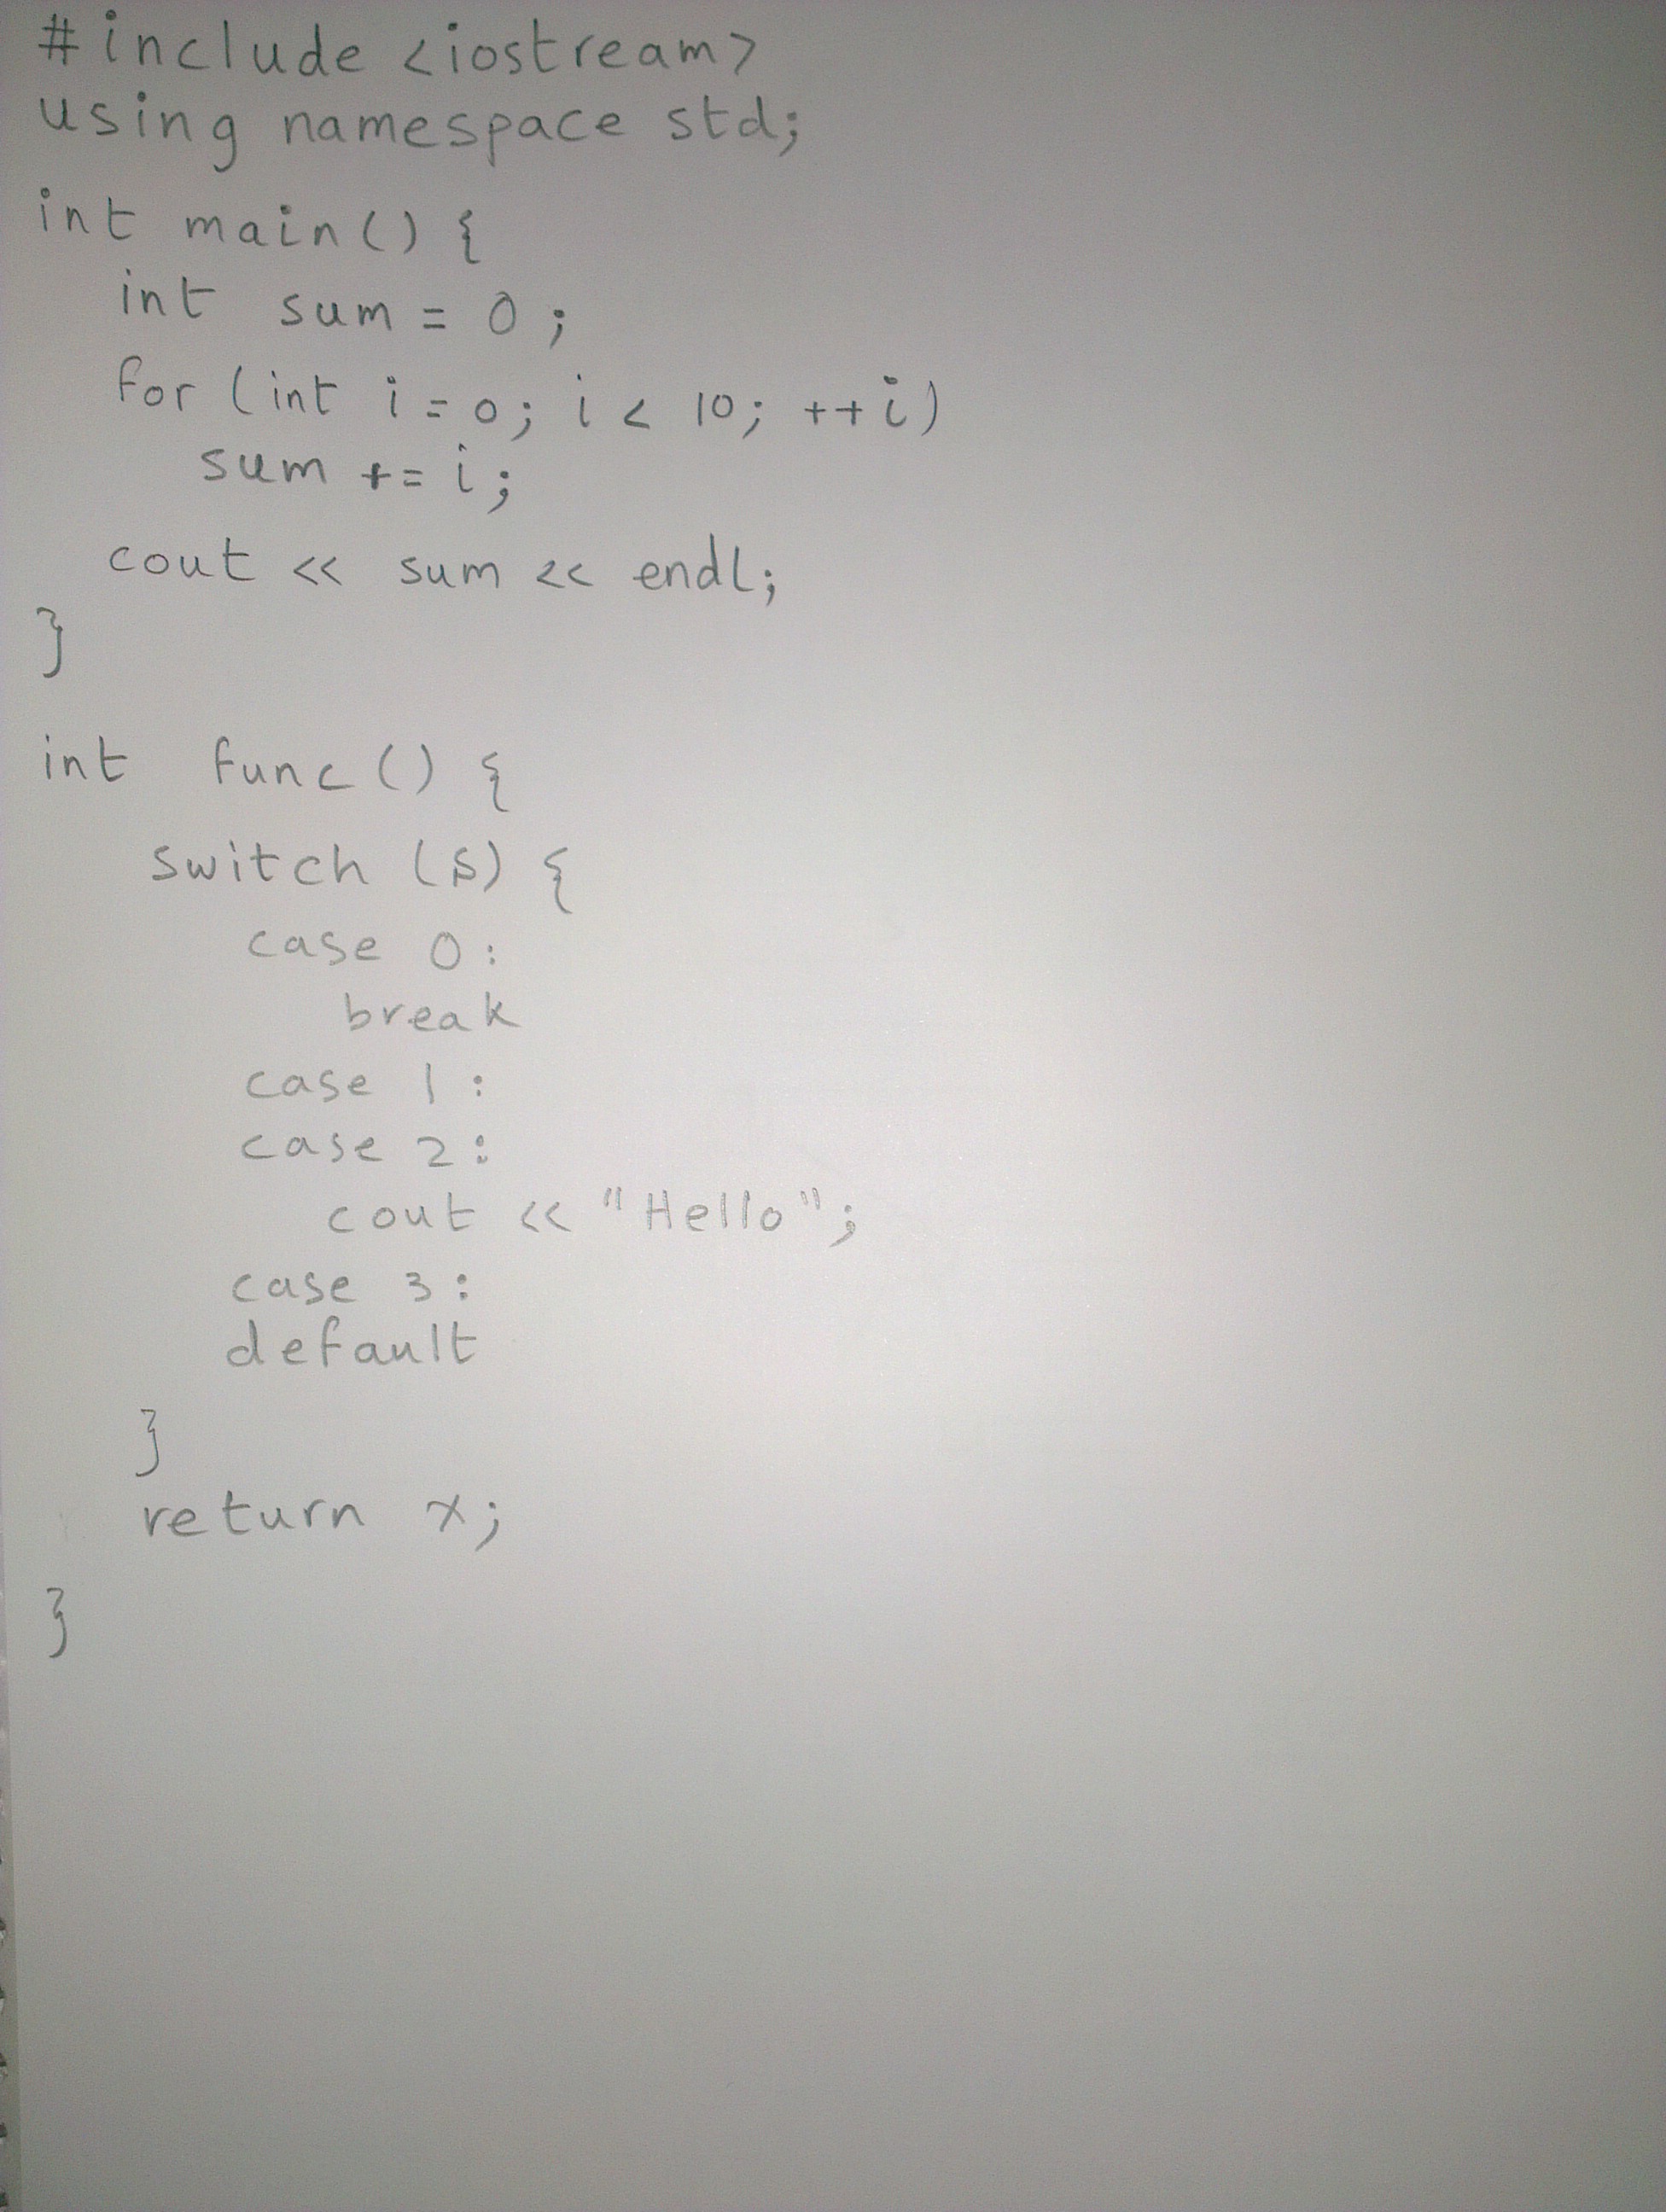 #include <iostream>
using namespace std;
int main() {
int sum = 0;
for (int i = 0; i < 10; ++i)
sum += i;
cout << sum << endl;
}
int func() {
switch (s) {
case 0:
break
case 1:
case 2:
cout << "Hello";
case 3:
default
}
return x;
}